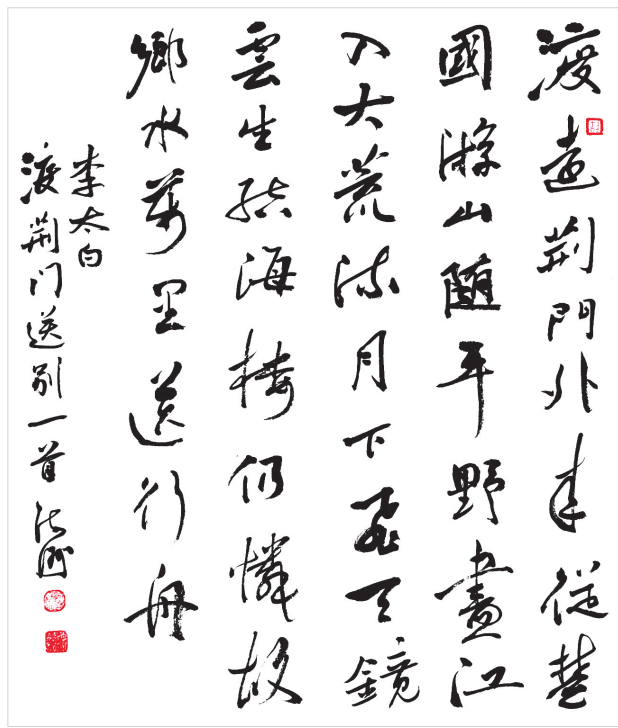 渡遠荆門外来從楚
國游山随平野盡江
入大荒流月下飛天鏡
雲生結海樓仍憐故
鄉水萬里送行舟
李太白
渡荆门送别一首